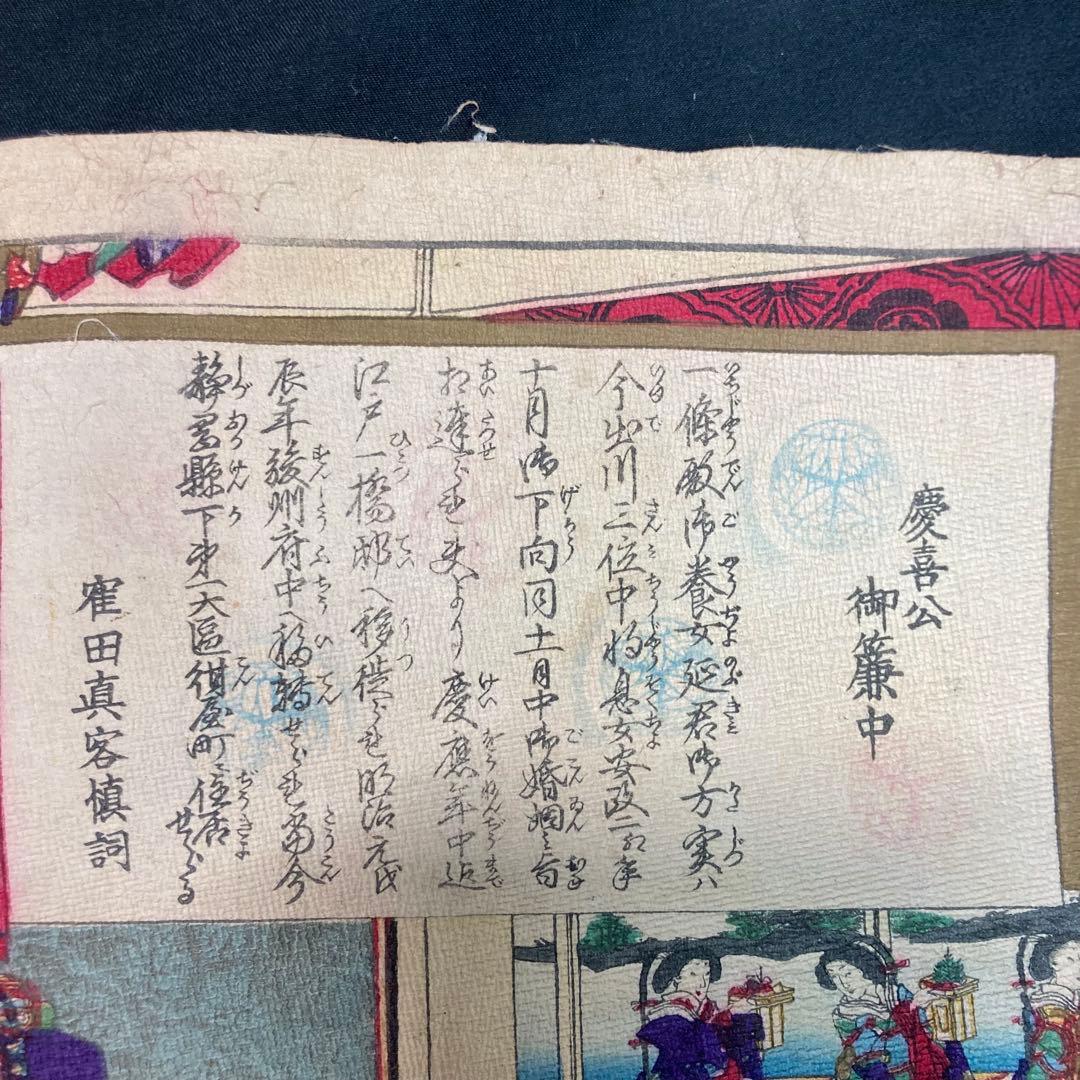 慶喜公
御簾中
一條殿御養女延君御方実ハ
今出川三位中将息女安政二卯年
十月御下向同十一月中御婚姻之旨
相達られ夫より慶應年中迄
江戸一橋邸へ移徙られ明治元戊
辰年駿州府中へ移轉せられ當今
静岡縣下第一大區紺屋町ニ住居せらるる
田真容慎詞